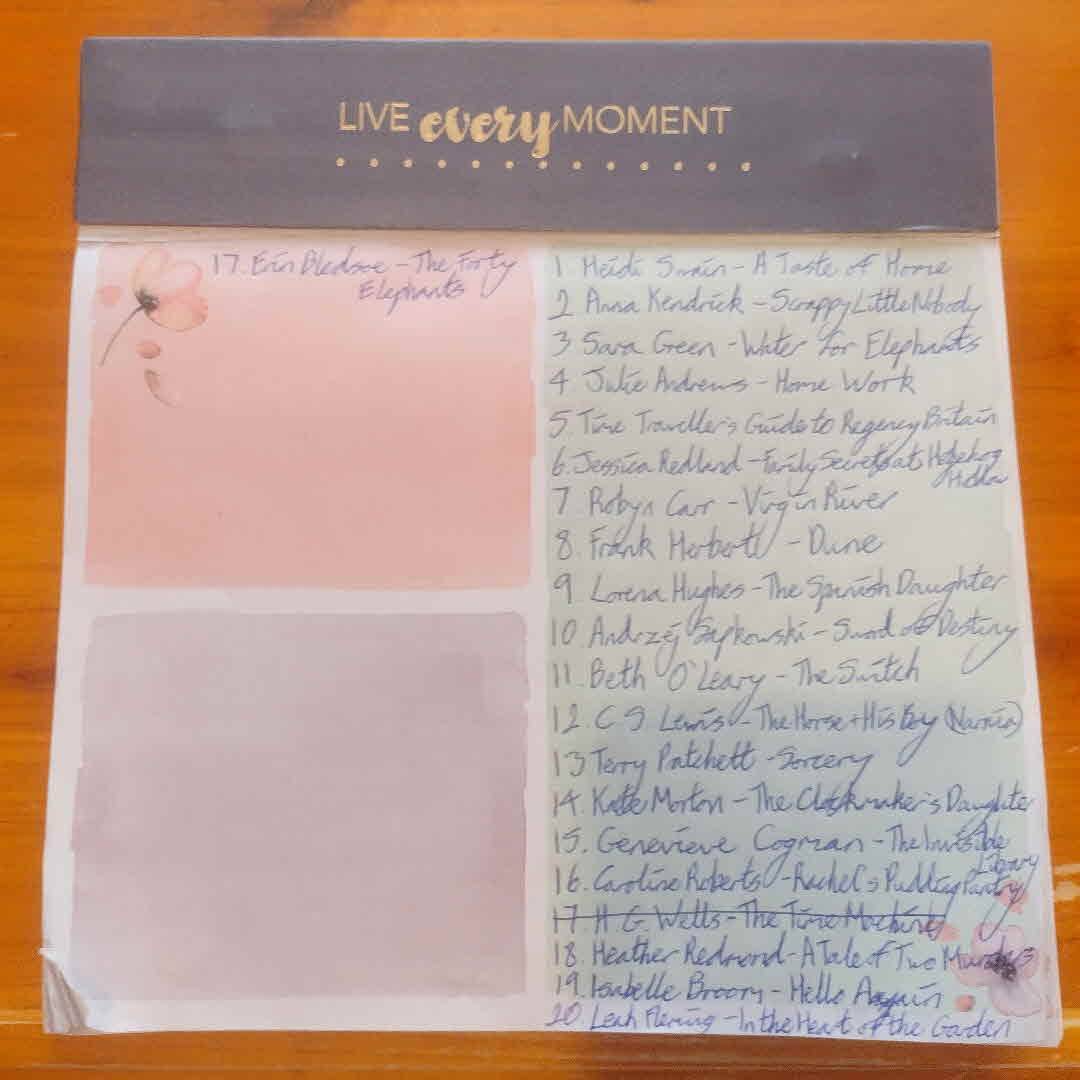 LIVE every MOMENT
17. Erin Bledsoe - The Forty
Elephants
1. Heidi Swain - A Taste of Home
2 Anna Kendrick - Scrappy Little Nobody
3 Sara Green - Water for Elephants
4 Julie Andrews - Home Work
5. Time Traveller's Guide to Regency Britain
6. Jessica Redland - Family Secrets at Hedgehog
Hollow
7 Robyn Carr - Virgin River
8. Frank Herbert - Dune
9 Lorena Hughes - The Spanish Daughter
10 Andrzej Sapkowski - Sword of Destiny
11. Beth O'Leary - The Switch
12. C S Lewis - The Horse + His Boy (Narnia)
13 Terry Patchett - Sorcery
14. Kate Morton - The Clockmaker's Daughter
15. Genevieve Cogman - The Invisible
Library
16. Caroline Roberts - Rachel's Pudding Pantry
17. H. G. Wells - The Time Machine
18. Heather Redmond - A Tale of Two Murders
19. Isabelle Broom - Hello Again
20. Leah Fleming - In the Heart of the Garden